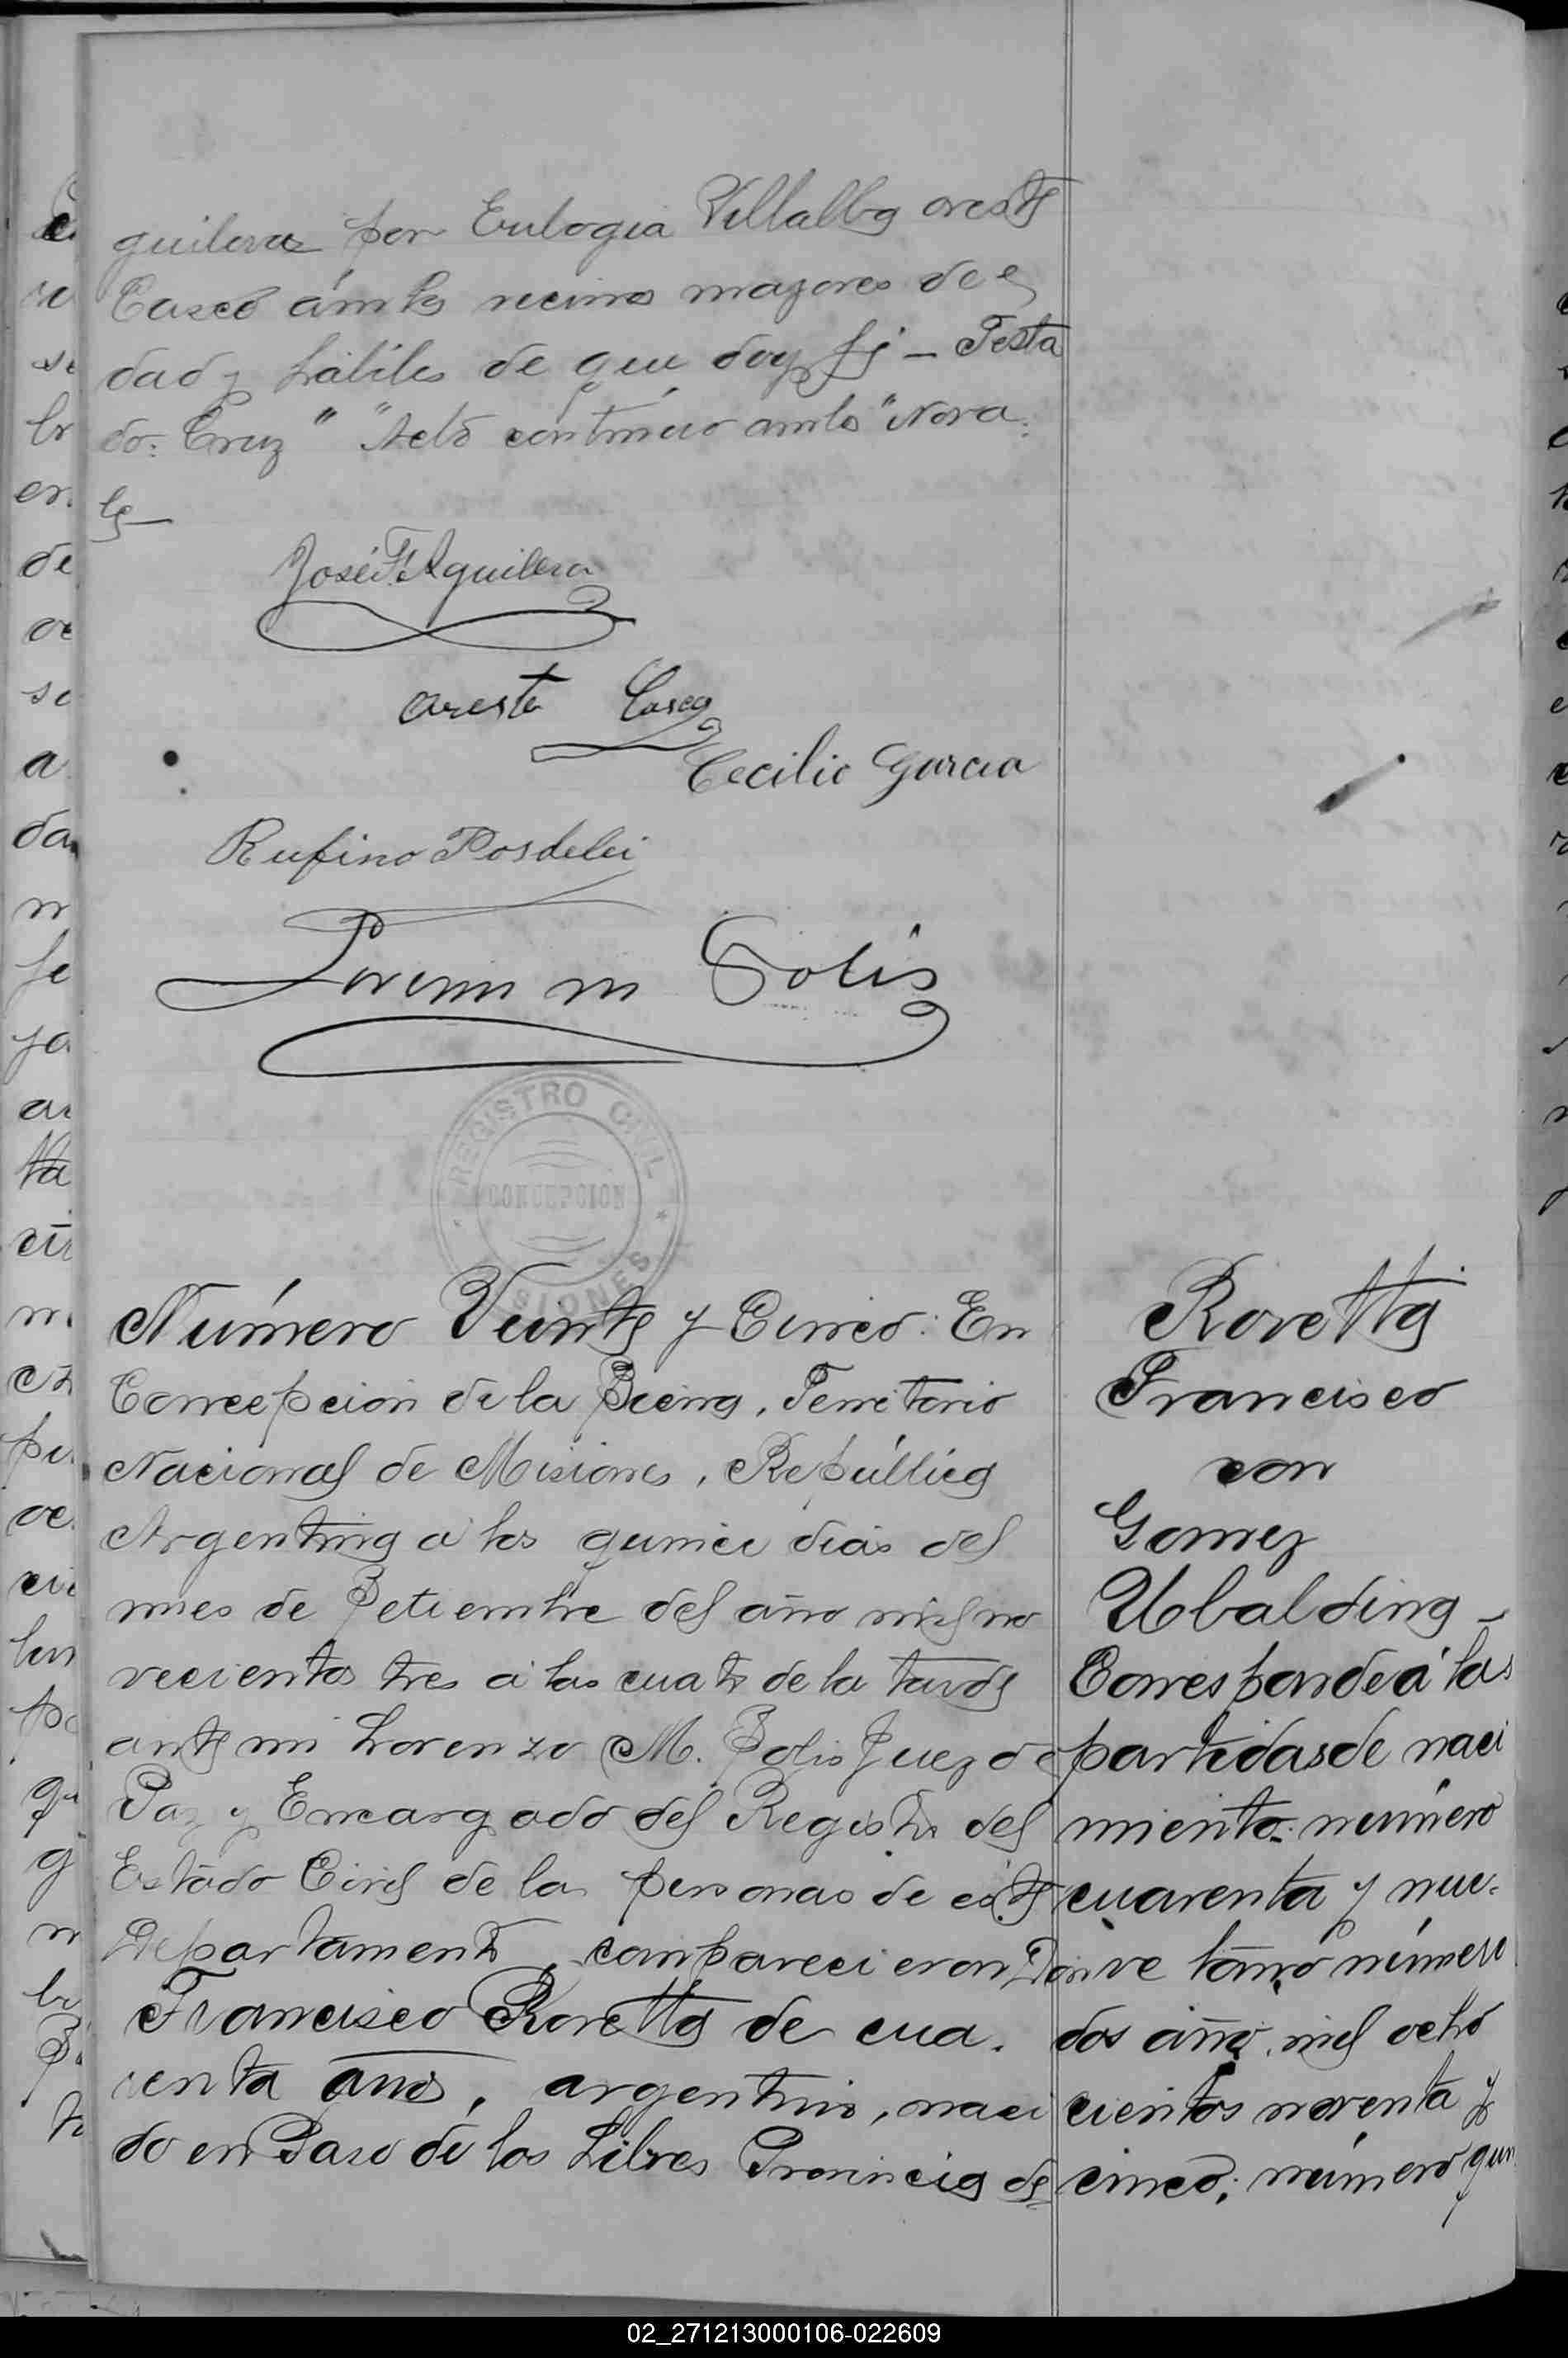 guilera por Eulogia Villalba oreste
Casco ámbos vecinos mayores de e
dad y hábiles de que doy fé – Testa
do: Cruz" "Acto contínuo ambos" No va
le—
José F. Aguilera
Oreste Casco
Cecilio Garcia
Rufino
Lorenzo M Solis
REGISTRO CIVIL
CONCEPCION
MISIONES
Número Veinte y Cinco: En
Concepcion de la Sierra, Territorio
Nacional de Misiones, República
Argentina á los quince dias del
mes de Setiembre del año mil no
vecientos tres á las cuatro de la tarde
ante mi Lorenzo M. Solis Juez de
Paz y Encargado del Registro del
Estado Civil de las personas de este
Departamento, comparecieron Don
Francisco Rovetta de cua.
renta años, argentino, naci
do en Paso de los Libres Provincia de
Rovetta
Francisco
con
Gomez
Ubaldina –
Corresponde á las
partidas de naci
miento: número
cuarenta y nue-
ve tomo número
dos año mil ocho
cientos noventa y
cinco; número quin
02_271213000106-022609